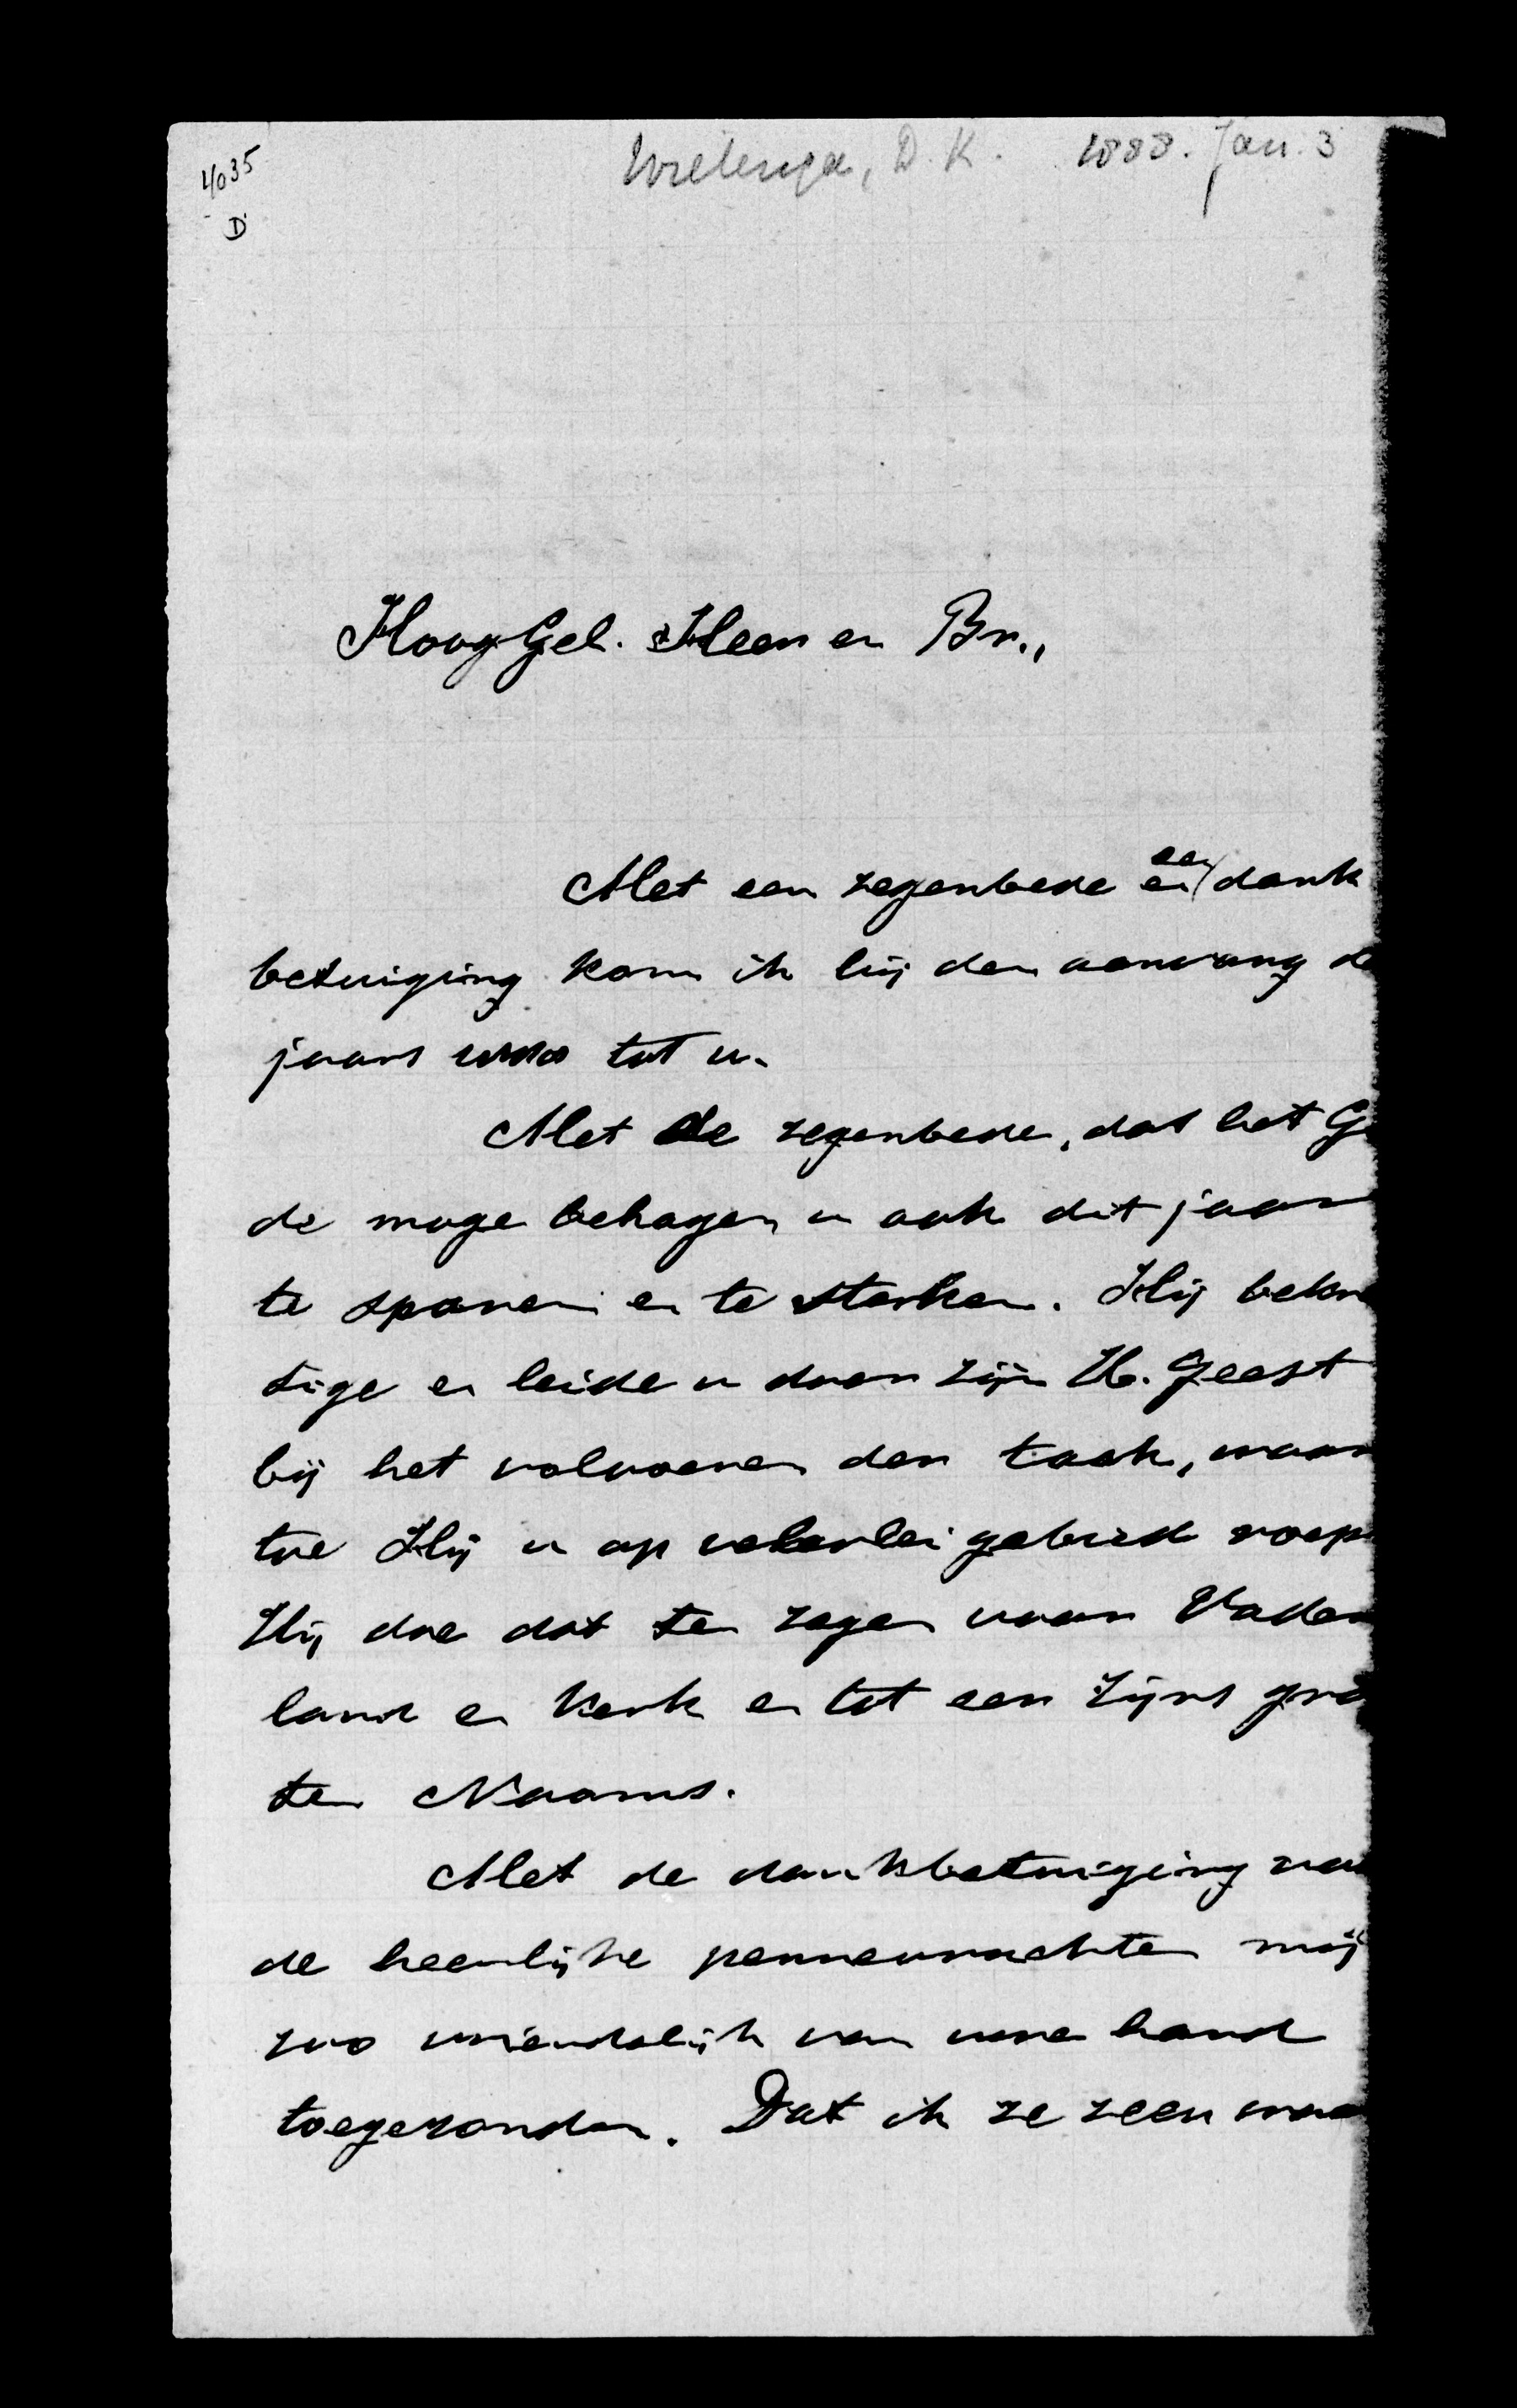 4035
D
Wielenga, D. K. 1888. Jan. 3
HoogGel. Heer en Br.,
Met een zegenbede en een dank
betuiging kom ik bij den aanvang de
jaars 1888 tot u.
Met de zegenbede, dat het G
de moge behagen u ook dit jaar
te sparen en te sterken. Hij bekra
tige en leide u door zijn H. Geest
bij het volvoeren der taak, waar
toe Hij u op velerlei gebied roept
Hij doe dat ten zegen voor Vader
land en Kerk en tot eer Zijns gro
ten Naams.
Met de dankbetuiging voo
de heerlijke pennevruchten mij
zoo vriendelijk van uwe hand
toegezonden. Dat ik ze zeer waa